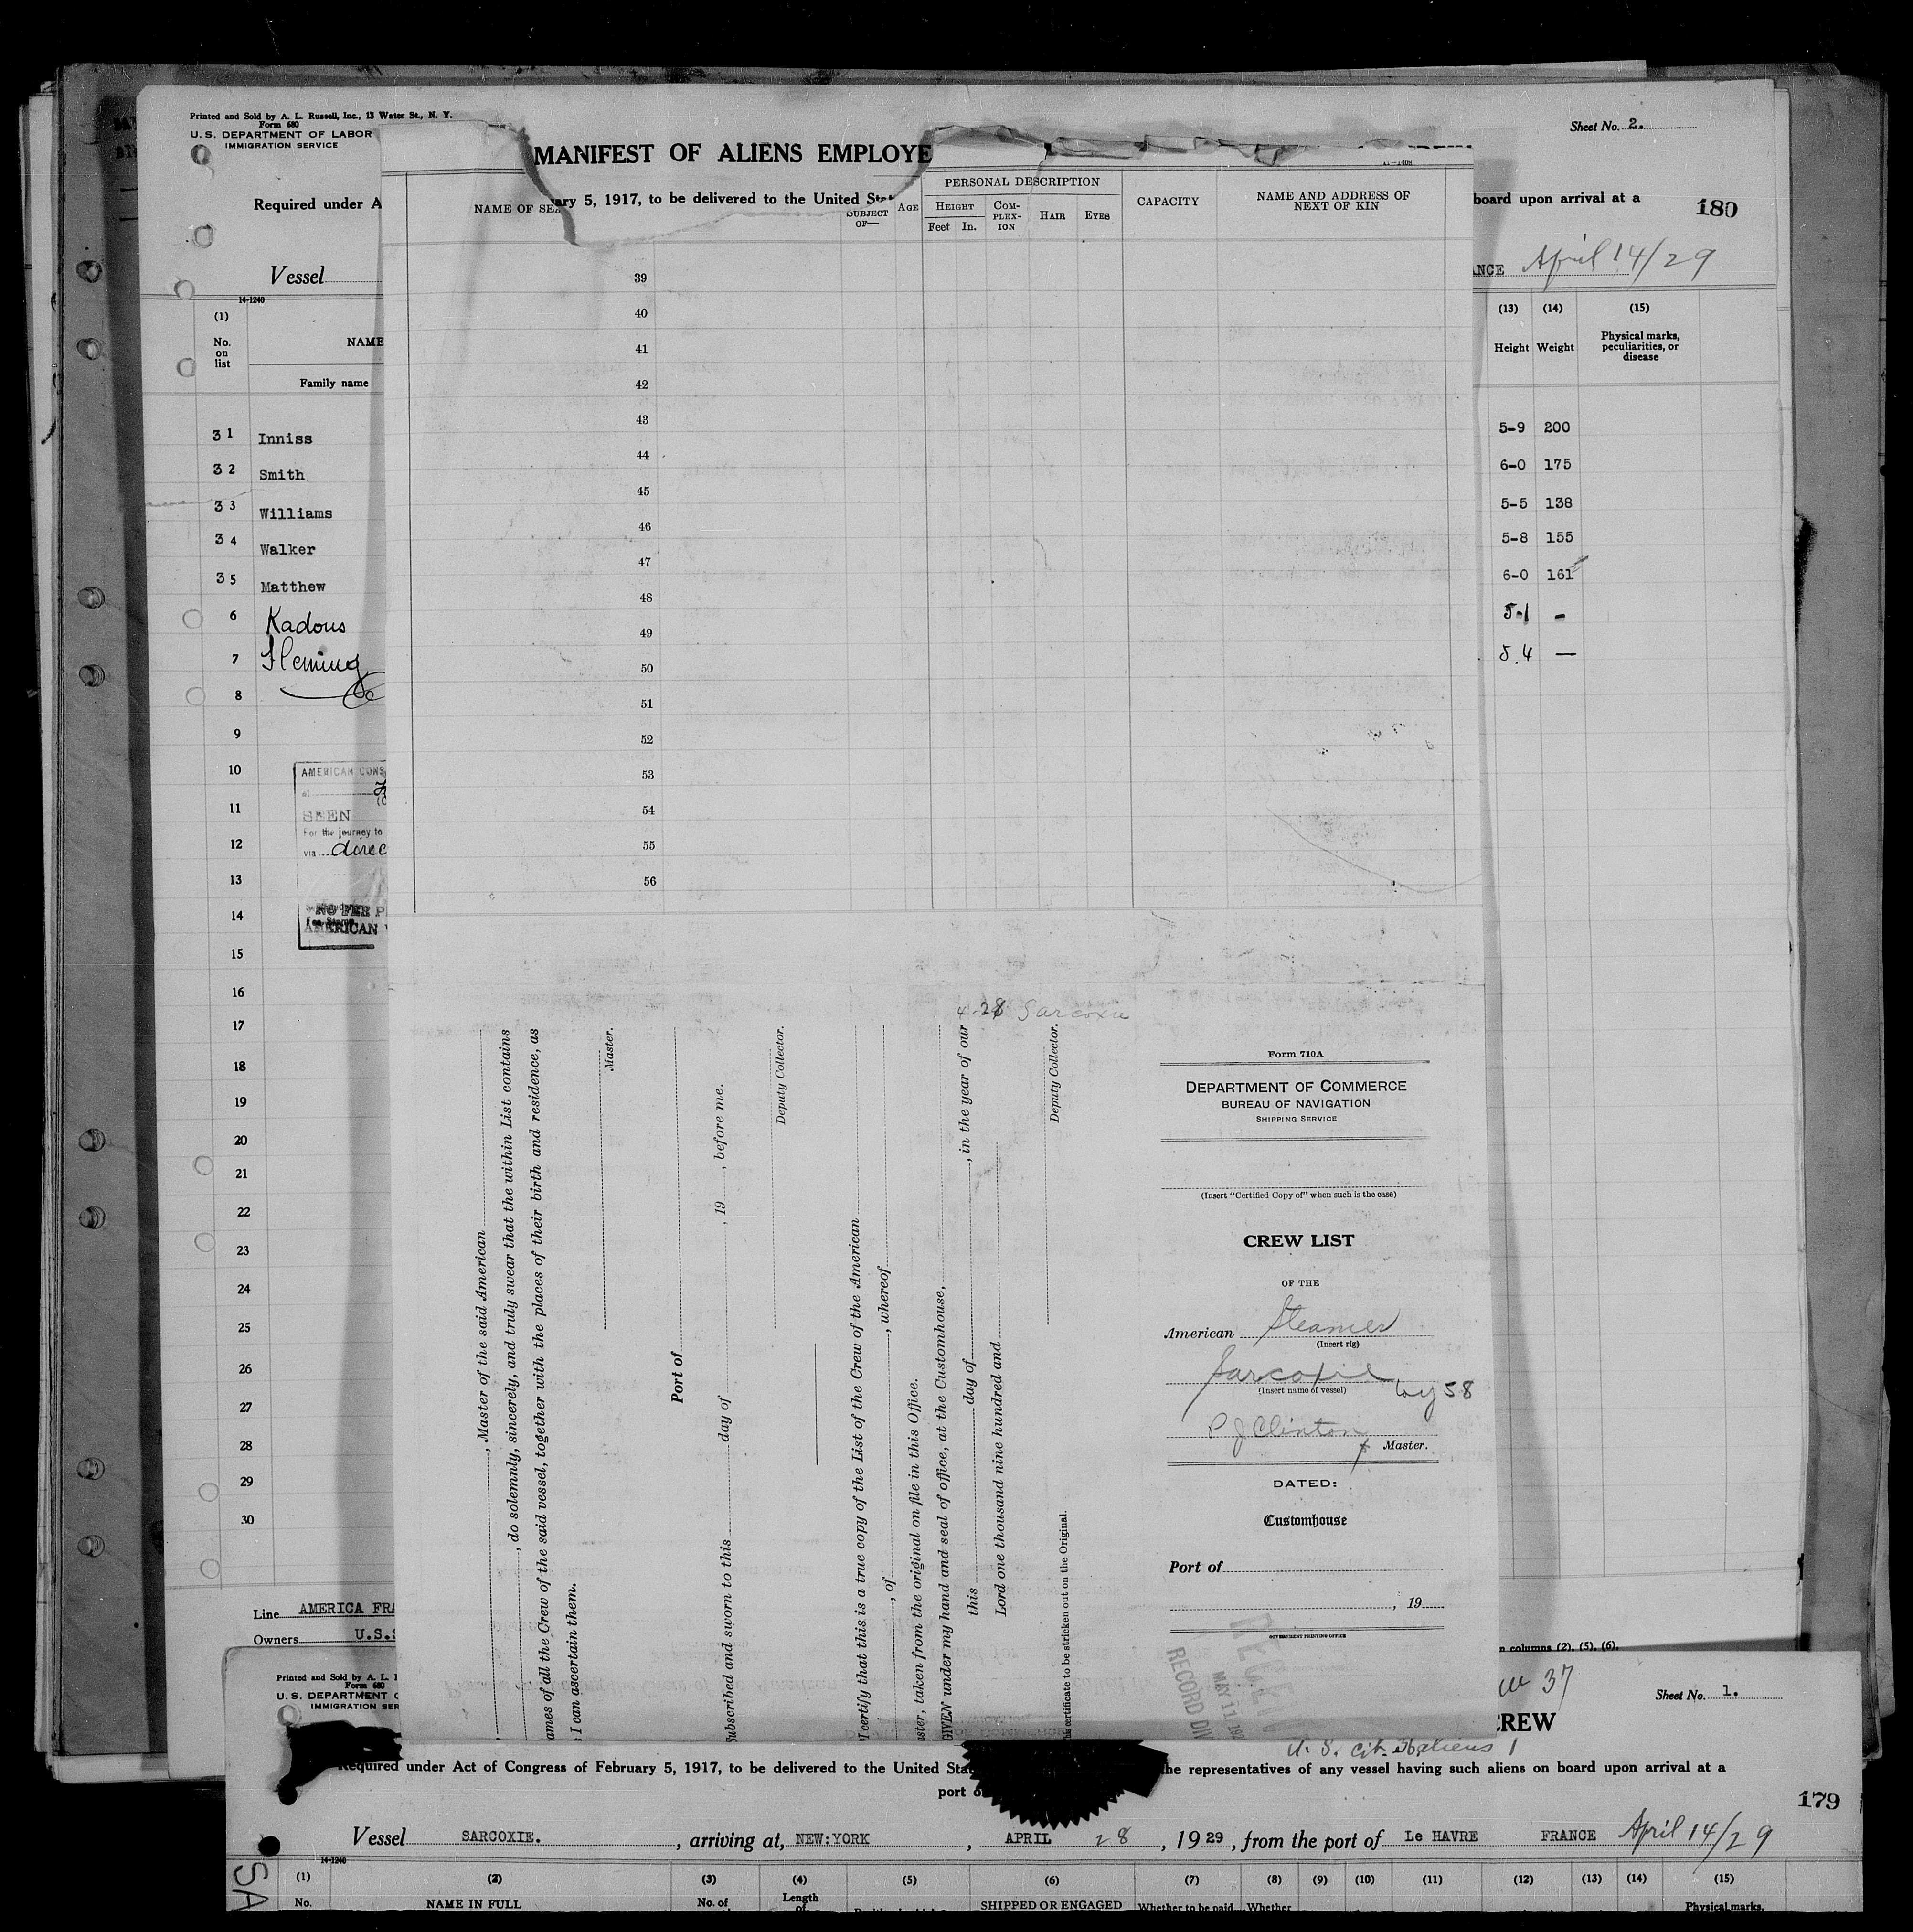 Printed and Sold by A. L. Russell, Inc., 13 Water St., N. Y.
Form 680
U. S. DEPARTMENT OF LABOR
IMMIGRATION SERVICE
Sheet No. 2.
MANIFEST OF ALIENS EMPLOYE
Required under A
ary 5, 1917, to be delivered to the United Sta
board upon arrival at a
180
Vessel
ANCE April 14/29
14-1240
(1)
No. on list
NAME
Family name
(13) (14) (15)
Height Weight Physical marks, peculiarities, or disease
31 Inniss 5-9 200
32 Smith 6-0 175
33 Williams 5-5 138
34 Walker 5-8 155
35 Matthew 6-0 161
6 Kadous 5-1 -
7 Fleming 5.4 —
8
9
10
11
12
13
14
15
16
17
18
19
20
21
22
23
24
25
26
27
28
29
30
AMERICAN CONS
at
SEEN
For the journey to
via direc
NO FEE P
AMERICAN
Line AMERICA FRA
Owners U.S.S
n columns (2), (5), (6).
NAME OF SEA
SUBJECT OF—
AGE
PERSONAL DESCRIPTION
HEIGHT
Feet In.
COM-PLEX-ION
HAIR
EYES
CAPACITY
NAME AND ADDRESS OF NEXT OF KIN
39
40
41
42
43
44
45
46
47
48
49
50
51
52
53
54
55
56
4-28 Sarcoxie
, Master of the said American
, do solemnly, sincerely, and truly swear that the within List contains
ames of all the Crew of the said vessel, together with the places of their birth and residence, as
I can ascertain them.
Master.
Port of
Subscribed and sworn to this day of , 19 , before me.
Deputy Collector.
I certify that this is a true copy of the List of the Crew of the American
, of , whereof
ster, taken from the original on file in this Office.
GIVEN under my hand and seal of office, at the Customhouse,
this day of , in the year of our
Lord one thousand nine hundred and
Deputy Collector.
is certificate to be stricken out on the Original.
Form 710A
DEPARTMENT OF COMMERCE
BUREAU OF NAVIGATION
SHIPPING SERVICE
(Insert "Certified Copy of" when such is the case)
CREW LIST
OF THE
American Steamer
(Insert rig)
Sarcoxie
(Insert name of vessel)
58
P J Clinton
Master.
DATED:
Customhouse
Port of
, 19
GOVERNMENT PRINTING OFFICE
MAY 11 19
RECORD DIV
Printed and Sold by A. L.
Form 680
U. S. DEPARTMENT O
IMMIGRATION SER
37
Sheet No. 1.
CREW
U. S. cit. 36 aliens 1
Required under Act of Congress of February 5, 1917, to be delivered to the United Sta
he representatives of any vessel having such aliens on board upon arrival at a
port o
179
Vessel SARCOXIE. , arriving at, NEW:YORK , APRIL 28 , 1929, from the port of Le HAVRE FRANCE April 14/29
14-1240
SA
(1) (2) (3) (4) (5) (6) (7) (8) (9) (10) (11) (12) (13) (14) (15)
No. NAME IN FULL No. of Length of SHIPPED OR ENGAGED Whether to be paid Whether Physical marks,